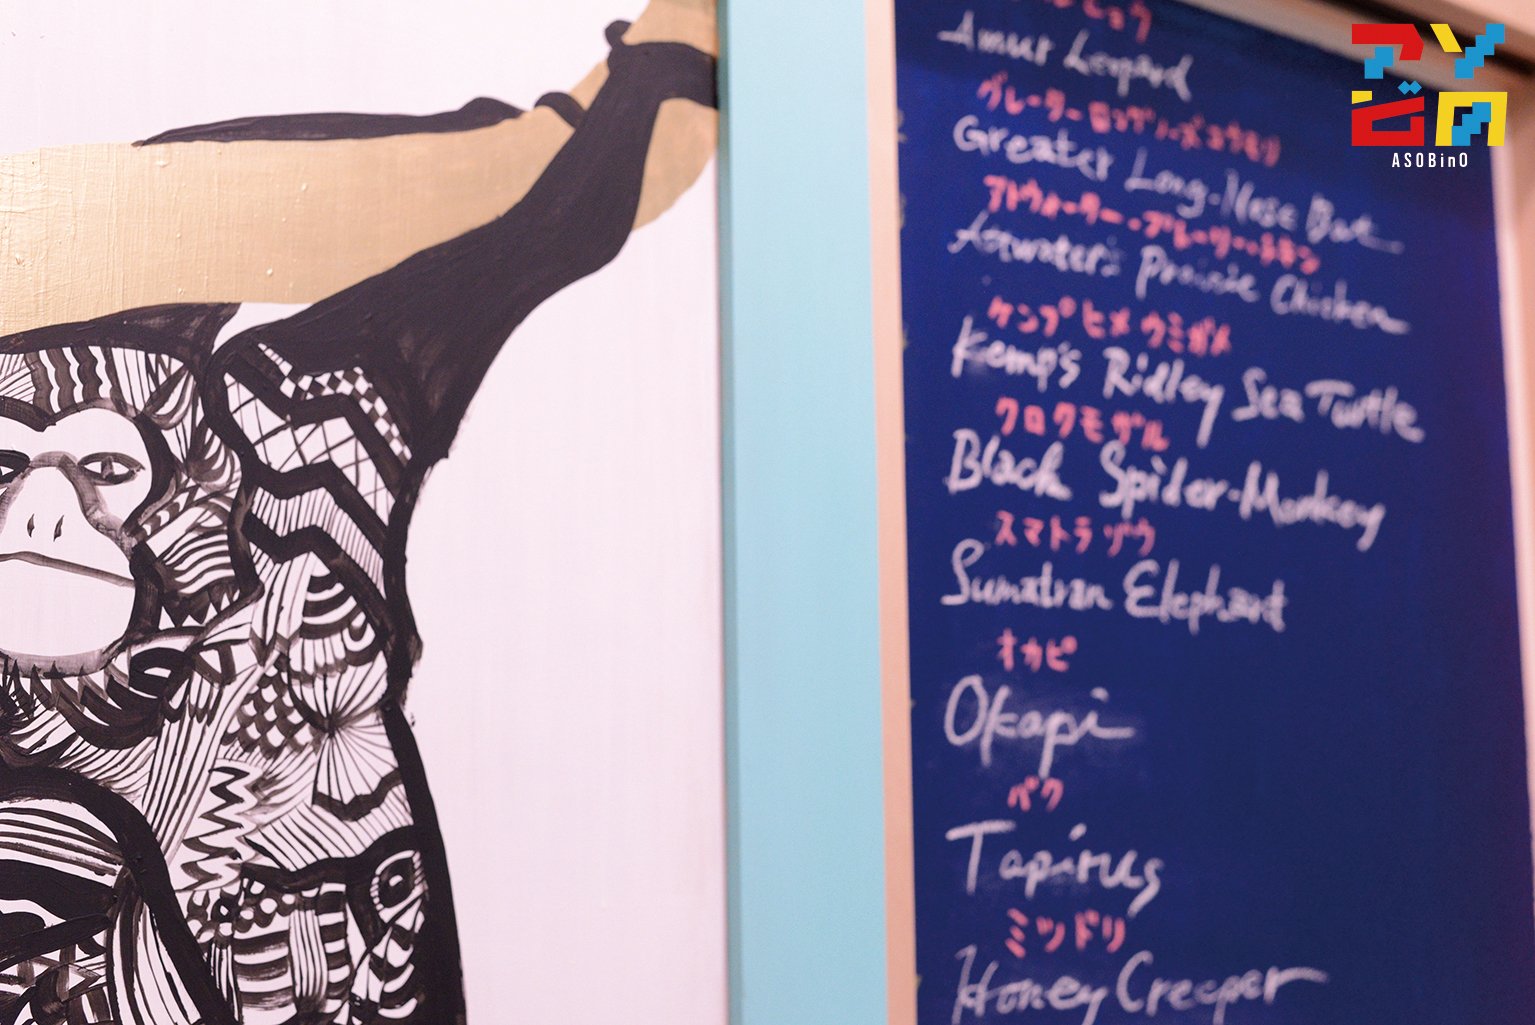 アソビノ
ASOBinO
Amur Leopard
グレーターロングノーズコウモリ
Greater Long-Nose Bat
アトウォーター・プレーリー・チキン
Attwater's Prairie Chicken
ケンプヒメウミガメ
Kemp's Ridley Sea Turtle
クロクモザル
Black Spider-Monkey
スマトラゾウ
Sumatran Elephant
オカピ
Okapi
バク
Tapirus
ミツドリ
Honey Creeper